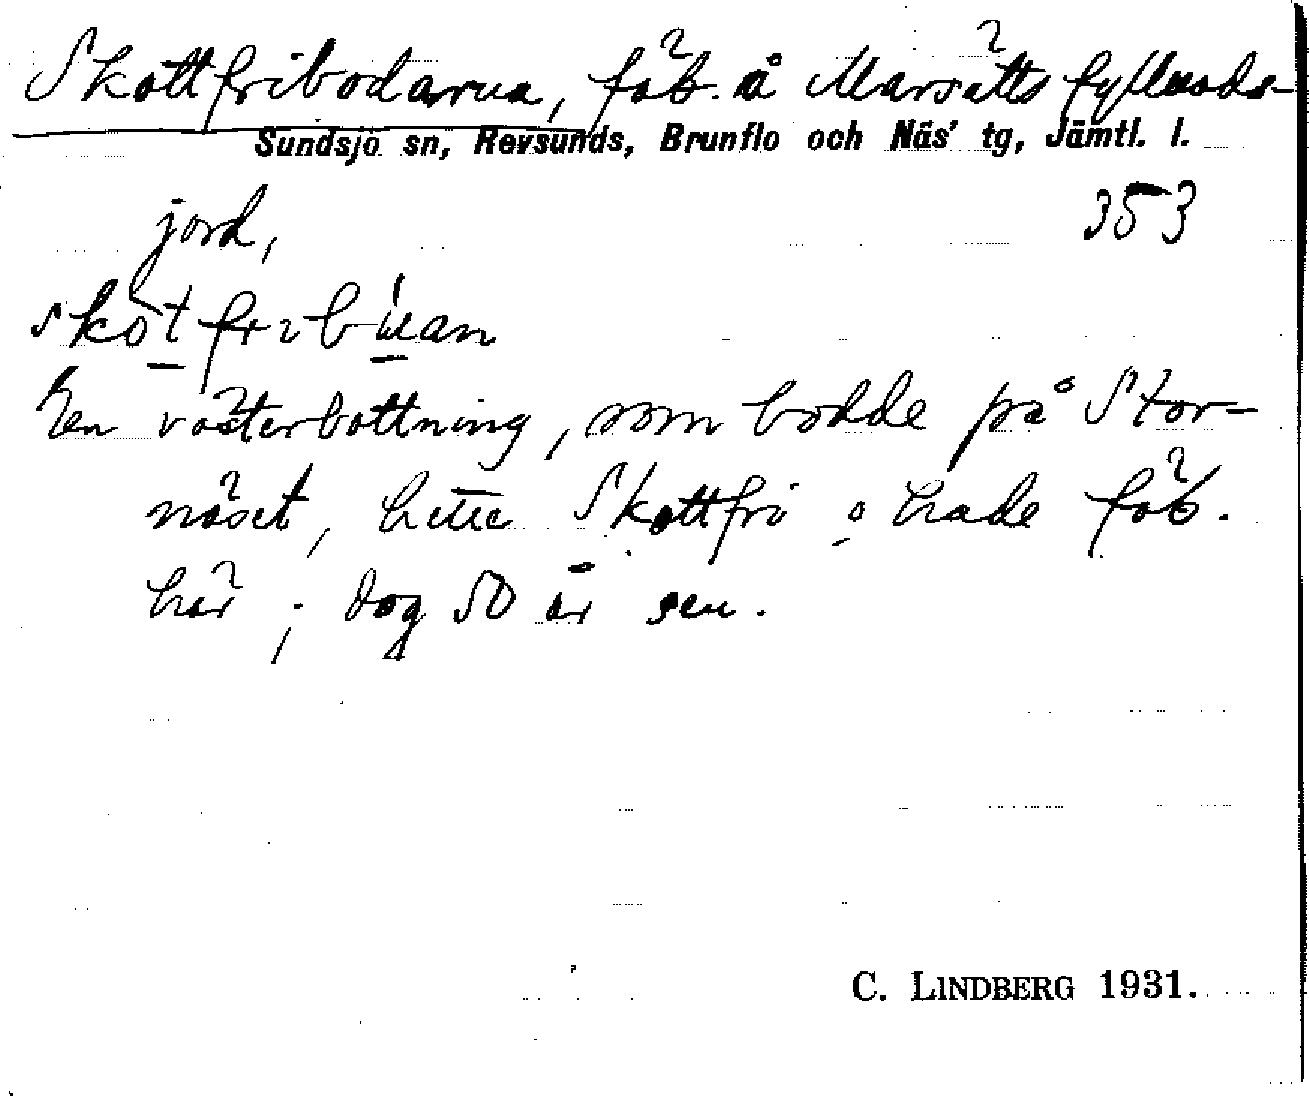 Skottfribodarna, fäb. å Marsätts fyllnads-
Sundsjö sn, Revsunds, Brunflo och Näs' tg, Jämtl. l.
jord, 353
En västerbottning, som bodde på Stor-
näset, hette Skottfri o hade fäb.
här; dog 50 år sen.
C. LINDBERG 1931.